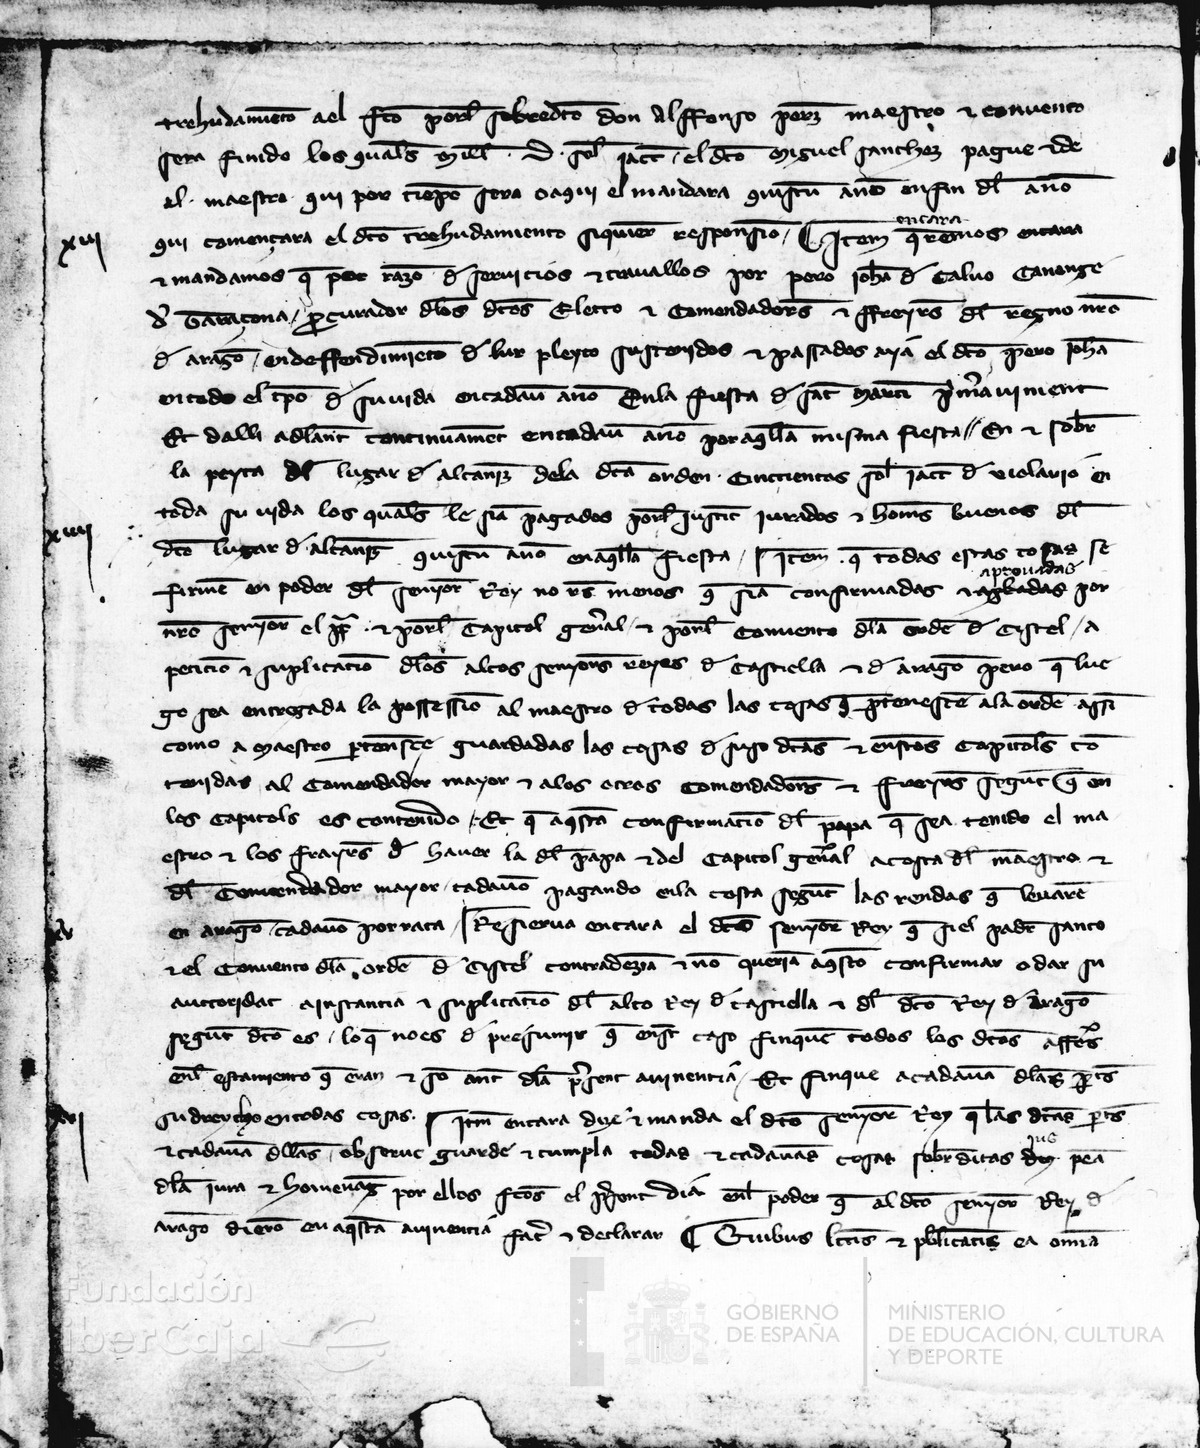 trehudamiento a el fcto porel sobredcto don Alffonso perez maestro et convento
sera finido los quales Miel D. sol iacc. el dcto Miguel sanchez pague et de
al maestro qui por tiempo sera o a qui el mandara quiscun anno en fin del anno
xiii
qui començara el dcto trehudamiento siquier responsion / ¶ Item queremos encara
encara
et mandamos que por razon de servicios et travallos por pero Johan de Calvo Canonge
de Taraçona / procurador delos dctos Electo et Comendadores et ffreyres del regno nro
de aragon / en deffendimiento de lur pleyto sustenidos et passados aya el dcto pero Johan
en todo el tpo de su vida en cadaun anno Enla fiesta de sant Marti primera vinient
Et dalli adelant continuament en cadaun anno por aquella misma fiesta // En et sobre
la peyta del lugar de alcaniz dela dcta orden Cincientos sol iacc de violario en
toda su vida los quales le sian pagados porel Justic iurados et homes buenos del
xiiii
dcto lugar de alcaniz quiscun anno en aquella fiesta / Item que todas estas cosas se
firmen en poder del senyor Rey no res menos que sian confirmadas et aprovadas por
nro senyor el pp. et porel Capitol general et porel Convento dela orden de Cistel / a
peticion et suplicacion delos altos senyores reyes de Castiella et de aragon pero que lue
go sea entregada la possession al maestro de todas las cosas que pertenescen ala orden assi
como a maestro pertenesce guardadas las cosas de suso dctas et en estos Capitoles con
tenidas al Comendador mayor et alos otros Comendadores et freyres segunt que en
los Capitols es contenido / Et que aquesta confirmacion del papa que sea tenido el ma
estro et los frayres de haver la del papa et del Capitol general a costa del maestro et
del Comendador mayor / cadauno pagando enla costa segunt las rendas que levaren
xv
en aragon / cadauno por rata / Reserva encara el dcto senyor Rey que si el padre santo
et el Convento dela orden de Cistel contradezian et no querian aquesto confirmar o dar su
auctoridat a instancia et suplicacion del alto Rey de Castiella et del dcto Rey de Aragon
segunt dcto es / lo que no es de presumir que en est caso finquen todos los dctos affers
enel estamiento que eran et son ant dela present avinencia / Et finque a cadauna delas partes
xvi
su dreycho en todas cosas. Item encara dize et manda el dcto senyor Rey que las dctas partes
et cadauna dellas observe guarde et cumpla todas et cadaunas cosas sobreditas jus pena
dela iura et homenage por ellos fctos el present dia enel poder que al dcto senyor Rey de
aragon dieron en aquesta avinencia facer et declarar ¶ Quibus lectis et publicatis ea omnia
Fundación
iberCaja
GOBIERNO
DE ESPAÑA
MINISTERIO
DE EDUCACIÓN, CULTURA
Y DEPORTE